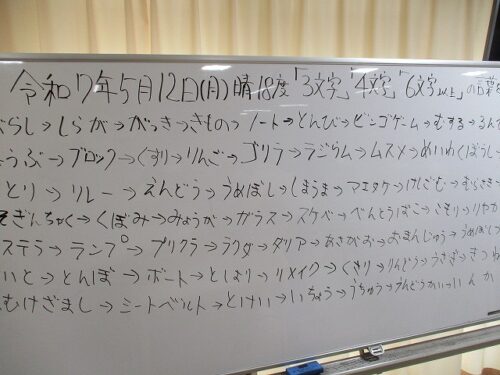 令和7年5月12日(月)晴18度「3文字」「4文字」「6文字以上」の言葉を
らし→しらが→がっき→つきもの→ノート→とんび→ビンゴゲーム→むする→るす
うぶ→ブロック→くすり→りんご→ゴリラ→ラジウム→ムスメ→めいわくぼうし
とり→リレー→えんどう→うめぼし→しまうま→マエタケ→けしごむ→むらさき
ぎんちゃく→くぼみ→みょうが→ガラス→スケベ→べんとうばこ→こもり→リヤカ
ステラ→ランプ→プリクラ→ラクダ→ダリア→あさがお→おまんじゅう→うめぼし
いと→とんぼ→ボート→としより→リメイク→くきり→りんどう→うさぎ→きつね
むけざまし→シートベルト→とけい→いちょう→うちゅう→うんどうかい→いんか